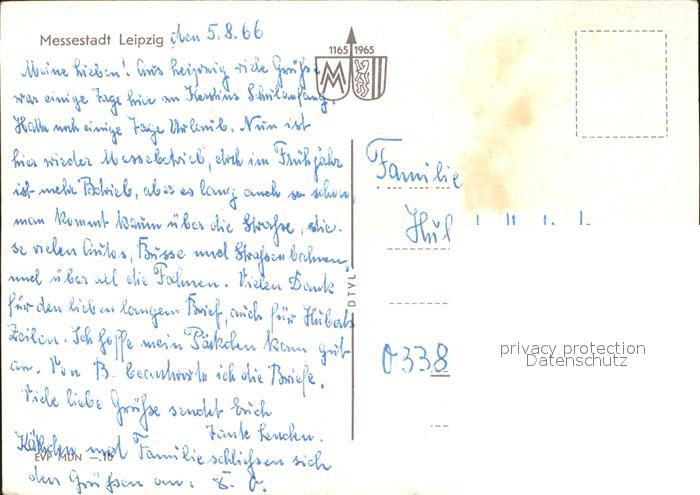 Messestadt Leipzig den 5.8.66
1165 1965
Meine Lieben! Aus Leipzig viele Grüße
war einige Tage hier an Kerstins Schulanfang.
Hatte noch einige Tage Urlaub. Nun ist
hier wieder Messebetrieb, doch im Frühjahr
ist mehr Betrieb, aber es lang auch so schon,
man kommt kaum über die Straße, die-
se vielen Autos, Busse und Straßenbahnen,
und über all die Fahnen. Vielen Dank
für den lieben langen Brief, auch für Huberts
Zeilen. Ich hoffe mein Päckchen kam gut
an. Von B. beantworte ich die Briefe.
Viele liebe Grüße sendet Euch
Tante Lenchen.
Käthchen und Familie schließen sich
den Grüßen an.
EVP MDN —.10
DTVL
Familie
0338
privacy protection
Datenschutz